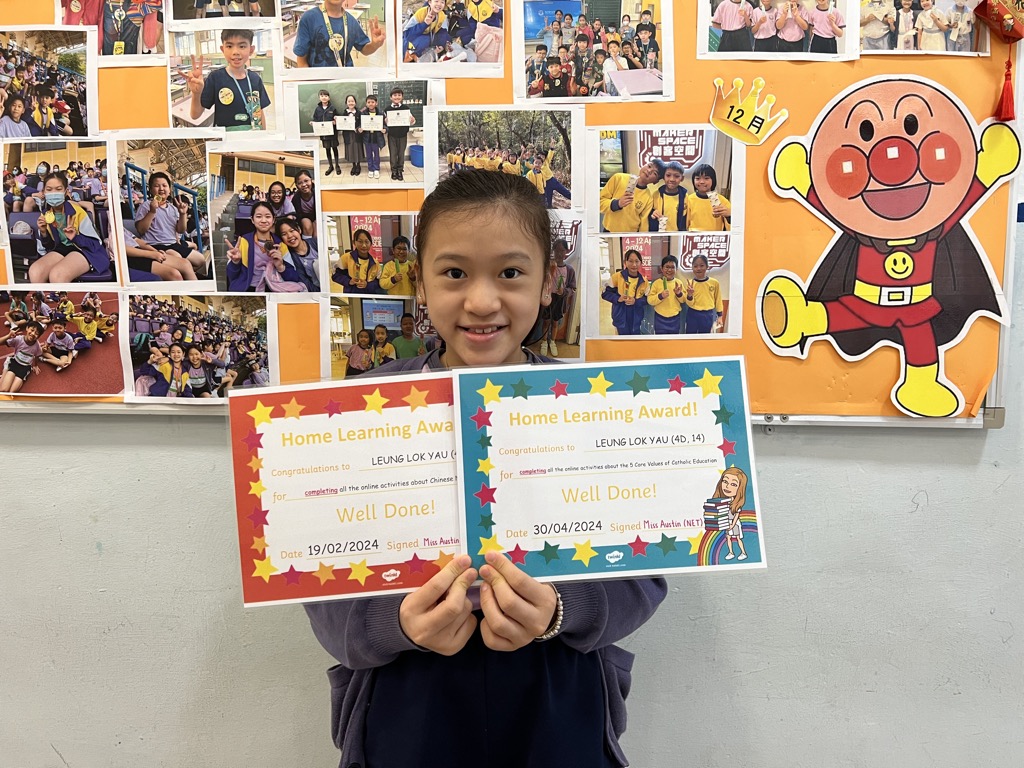 12月
MAKER
SPACE
創客空間
4-12 Apr
2024
MAKER
SPACE
4-12
2024
Home Learning Awa
Congratulations to LEUNG LOK YAU (4
for completing all the online activities about Chinese
Well Done!
Date 19/02/2024 Signed Miss Austin
Home Learning Award!
Congratulations to LEUNG LOK YAU (4D, 14)
for completing all the online activities about the 5 Core Values of Catholic Education
Well Done!
Date 30/04/2024 Signed Miss Austin (NET)